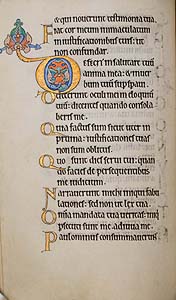 & qui noverunt testimonia tua.
Fiat cor meum immaculatum
in iustificationibus tuis: ut
non confundar.
Defecit in salutare tuum
anima mea: & in ver
bum tuum
oculi mei in eloquium
tuum: dicentes quando consola
beris me.
Quia factus sum sicut uter in
pruina: iustificationes tuas
non sum oblitus.
Quot sunt dies servi tui: quan
do facies de persequentibus
me iudicium.
Narraverunt michi iniqui fabu
lationes: sed non ut lex tua.
Omnia mandata tua veritas: iniqui
persecuti sunt me adiuva me.
Paulominus consummaverunt